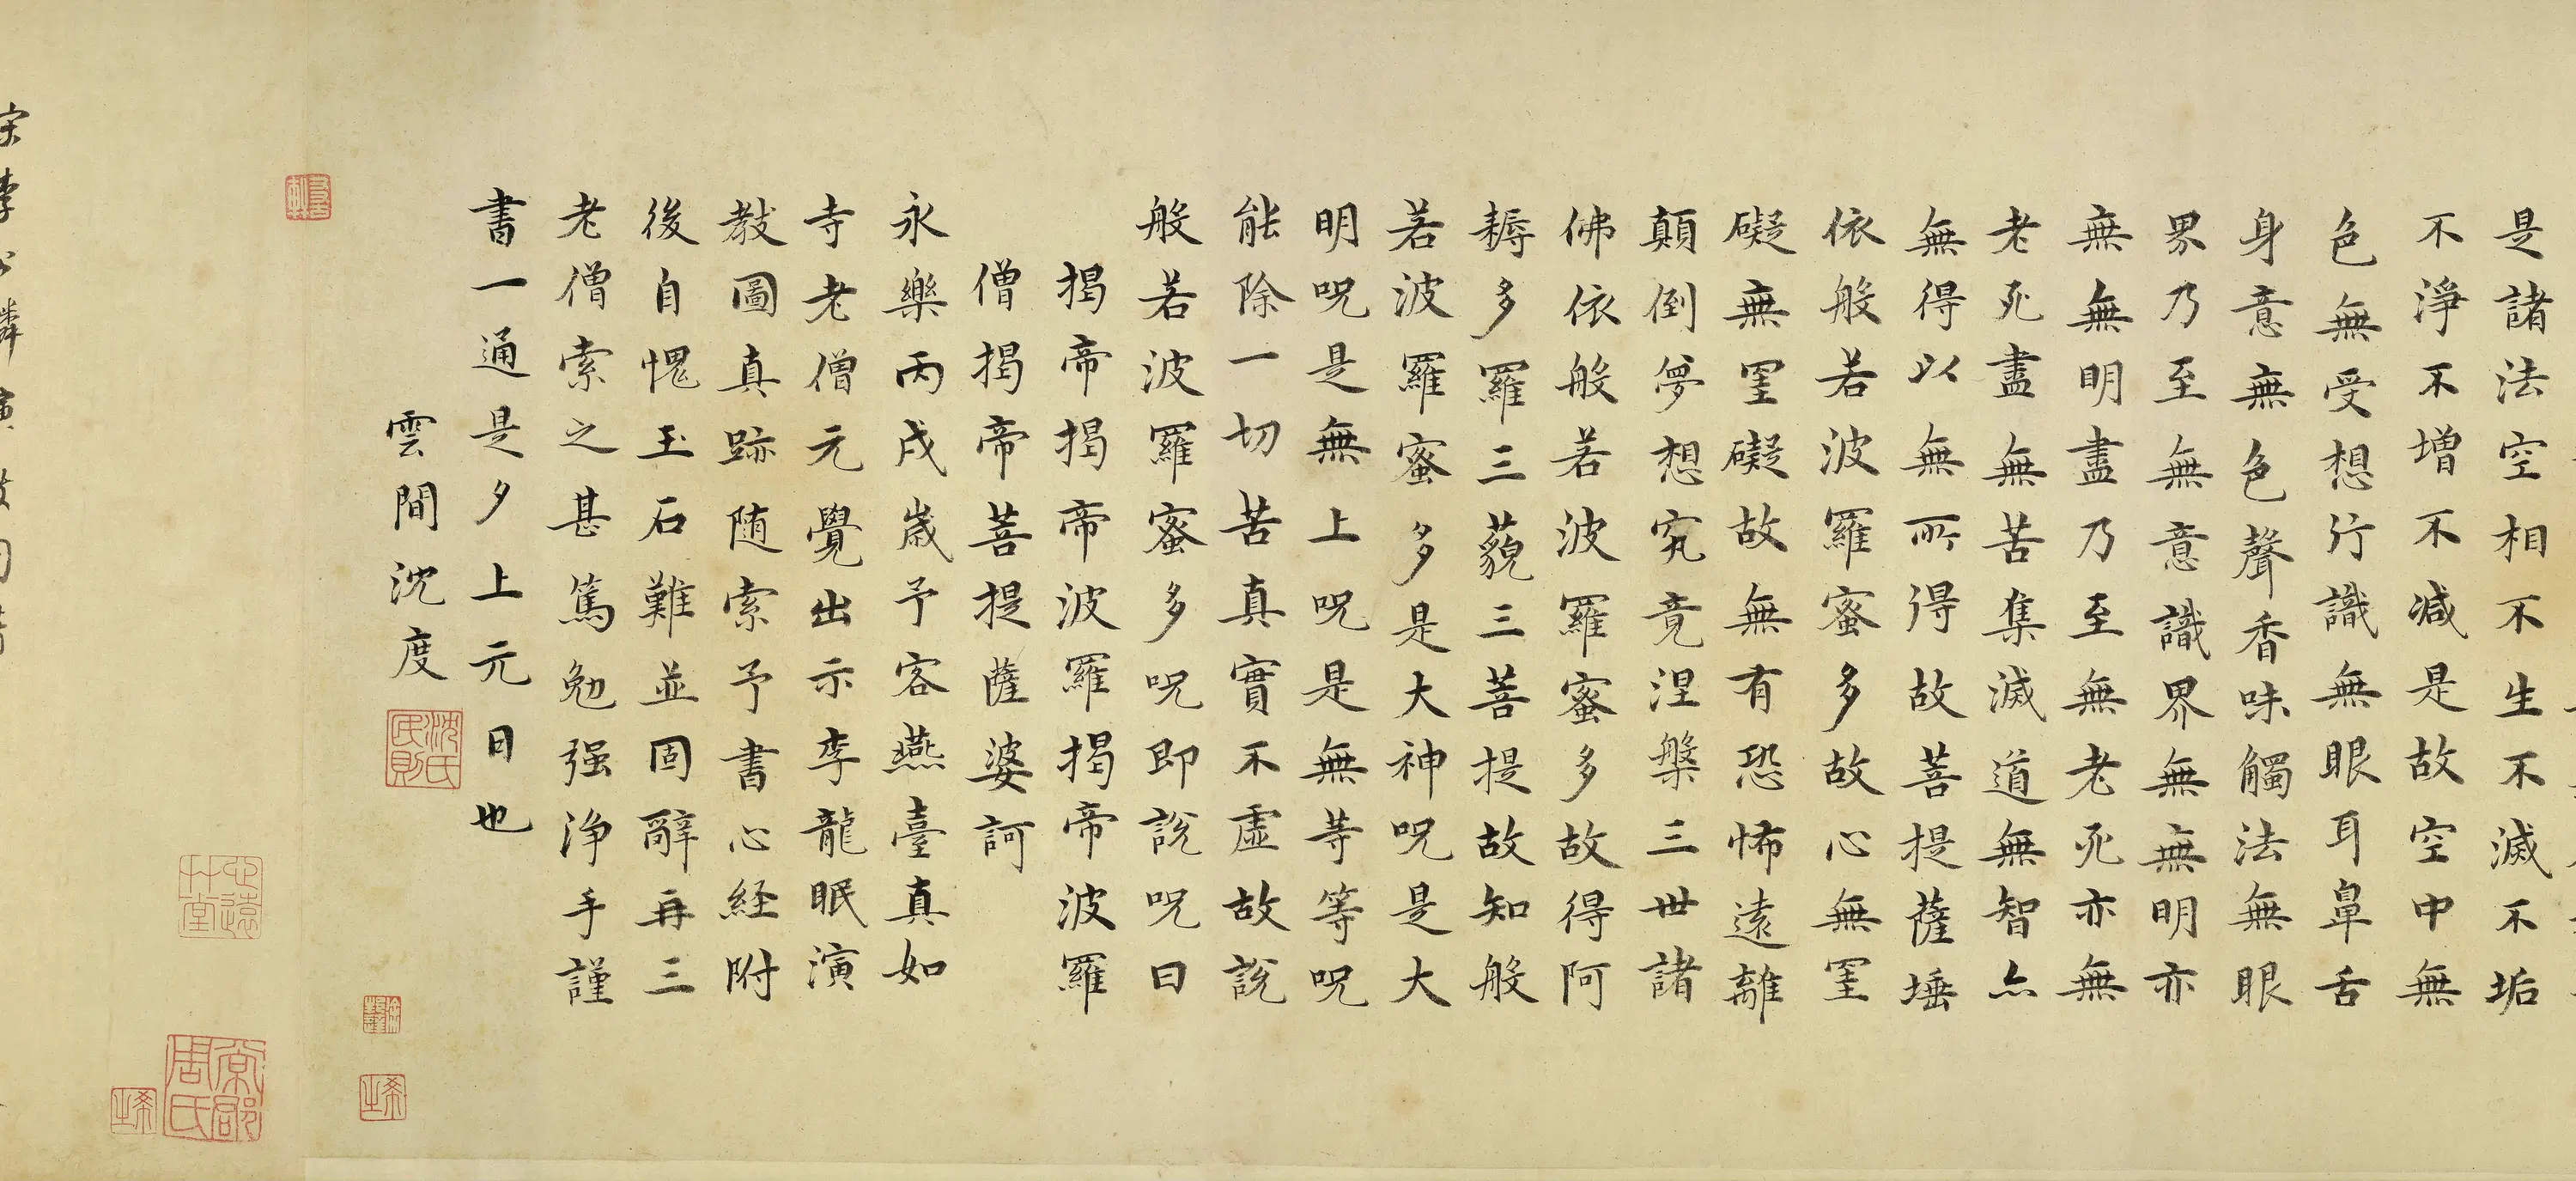 是諸法空相不生不滅不垢
不淨不增不減是故空中無
色無受想行識無眼耳鼻舌
身意無色聲香味觸法無眼
界乃至無意識界無無明亦
無無明盡乃至無老死亦無
老死盡無苦集滅道無智亦
無得以無所得故菩提薩埵
依般若波羅蜜多故心無罣
礙無罣礙故無有恐怖遠離
顛倒夢想究竟涅槃三世諸
佛依般若波羅蜜多故得阿
耨多羅三藐三菩提故知般
若波羅蜜多是大神呪是大
明呪是無上呪是無等等呪
能除一切苦真實不虛故說
般若波羅蜜多呪即說呪曰
揭帝揭帝波羅揭帝波羅
僧揭帝菩提薩婆訶
永樂丙戌歲予客燕臺真如
寺老僧元覺出示李龍眠演
教圖真跡随索予書心経附
後自愧玉石難並固辭再三
老僧索之甚篤勉强淨手謹
書一通是夕上元日也
雲間沈度
沈氏民則
宋李公麟演教圖